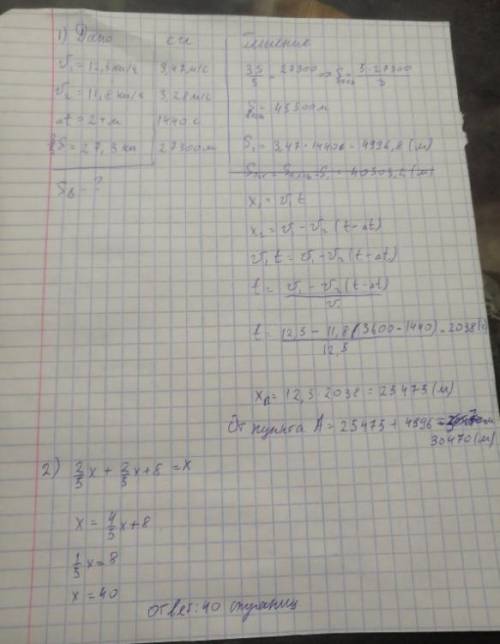 1) Дано
си
Решение
v₁ = 12,5 км/ч 3,47 м/с
v₂ = 11,8 км/ч 3,28 м/с
Δt = 24 м 1440 с
S = 27,3 км 27300 м
Sв - ?
3S/5 = 27300 => S = 5·27300/3
S = 45500 м
S₁ = 3,47 · 1440 = 4996,8 (м)
x₁ = v₁t
x₂ = v₁ - v₂ (t - Δt)
v₁t = v₁ - v₂ (t - Δt)
t = v₁ - v₂ (t - Δt) / v₁
t = 12,5 - 11,8 (3600 - 1440) / 12,5 = 2038
xв = 12,5 · 2038 = 25475 (м)
От пункта A = 25475 + 4996 =
30470 (м)
2) 2/5 x + 2/5 x + 8 = x
x = 4/5 x + 8
1/5 x = 8
x = 40
Ответ: 40 страниц